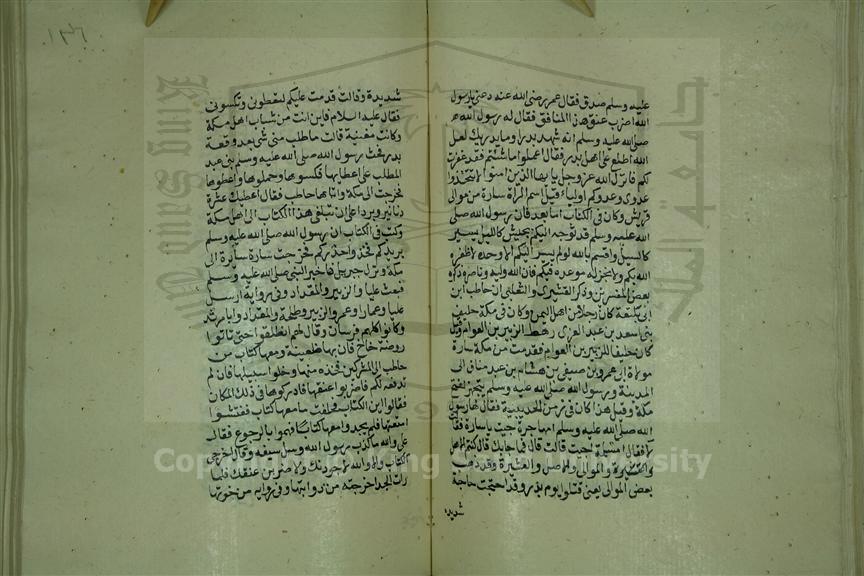 عليه وسلم صدق فقال عمر رضى الله عنه دعنى يا رسول
الله اضرب عنق هذا المنافق فقال له رسول الله
صلى الله عليه وسلم انه شهد بدرا وما يدريك لعل
الله اطلع على اهل بدر فقال اعملوا ما شئتم فقد غفرت
لكم فانزل الله عز وجل يا يها الذين امنوا لا تتخذوا
عدوى وعدوكم اولياء قيل اسم المراة سارة من موالى
قريش وكان فى الكتاب اما بعد فان رسول الله صلى
الله عليه وسلم قد توجه اليكم بجيش كالليل يسير
كالسيل واقسم بالله لو لم يسر اليكم الا وحده لاظفره
الله بكم ولانجز له موعده فيكم فان الله وليه وناصره ذكره
بعض المفسرين وذكر القشيرى والثعلبى ان حاطب ابن
ابى بلتعة كان رجلا من اهل اليمن وكان فى مكة حليف
بنى اسعد بن عبد العزى رهط الزبير بن العوام وقيل
كان حليفا للزبير بن العوام فقدمت من مكة سارة
مولاة ابى عمرو بن صيفى بن هشام بن عبد مناف الى
المدينة ورسول الله صلى الله عليه وسلم يتجهز لفتح
مكة وقيل هذا كان فى زمن الحديبية فقال لها رسول
الله صلى الله عليه وسلم امهاجرة جيت يا سارة فقالت
لا فقال امسلمة جيت قالت لا قال فما جابك قال كنتم الاهل
والموالى والاصل والعشيرة وقد ذهب
بعض الموالى يعنى قتلوا يوم بدر وقد احتجت حاجة
شديدة
١٣٦
شديدة وقالت قدمت عليكم لتعطونى وتكسونى
فقال عليه السلام فاين انت من شباب اهل مكة
وكانت مغنية قالت ما طلب منى شى بعد وقعة
بدر فحث رسول الله صلى الله عليه وسلم بنى عبد
المطلب على اعطايها فكسوها وحملوها واعطوها
فخرجت الى مكة واتاها حاطب فقال اعطيك عشرة
دنانير وبردا على ان تبلغى هذا الكتاب الى اهل مكة
وكتب فى الكتاب ان رسول الله صلى الله عليه وسلم
يريدكم فخذوا حذركم فخرجت سارة سايرة الى
مكة ونزل جبريل فاخبر النبى صلى الله عليه وسلم
فبعث عليا والزبير والمقداد وفى رواية ارسل
عليا وعمارا وعمر والزبير وطلحة والمقداد وابا مرثد
وكانوا كلهم فرسان وقال لهم انطلقوا حتى تاتوا
روضة خاخ فان بها ظعينة ومعها كتاب من
حاطب الى المشركين فخذه منها وخلوا سبيلها فان لم
تدفعه لكم فاضربوا عنقها فادركوها فى ذلك المكان
فقالوا اين الكتاب فحلفت ما معها كتاب ففتشوا
امتعتها فلم يجدوا معها كتابا فهموا بالرجوع فقال
على والله ما كذب رسول الله وسل سيفه وقال اخرجى
الكتاب والا والله لاجردنك ولاضربن عنقك فلما
رات الجد اخرجته من ذوابتها وفى رواية من حجزتها